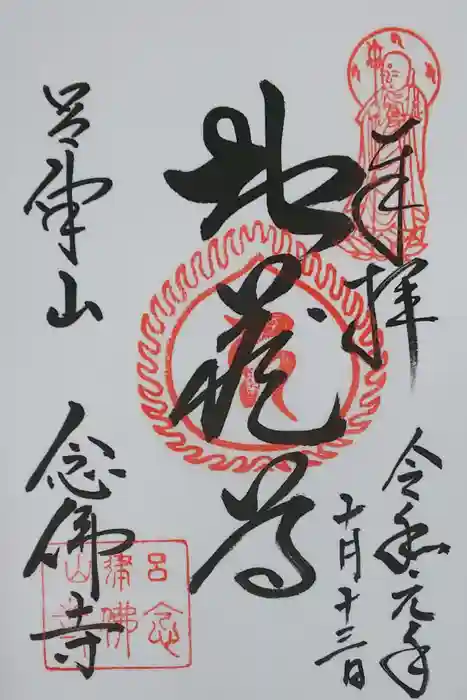 奉拝
令和元年
十一月十三日
地蔵尊
呂律山
念佛寺
呂念
律佛
山寺